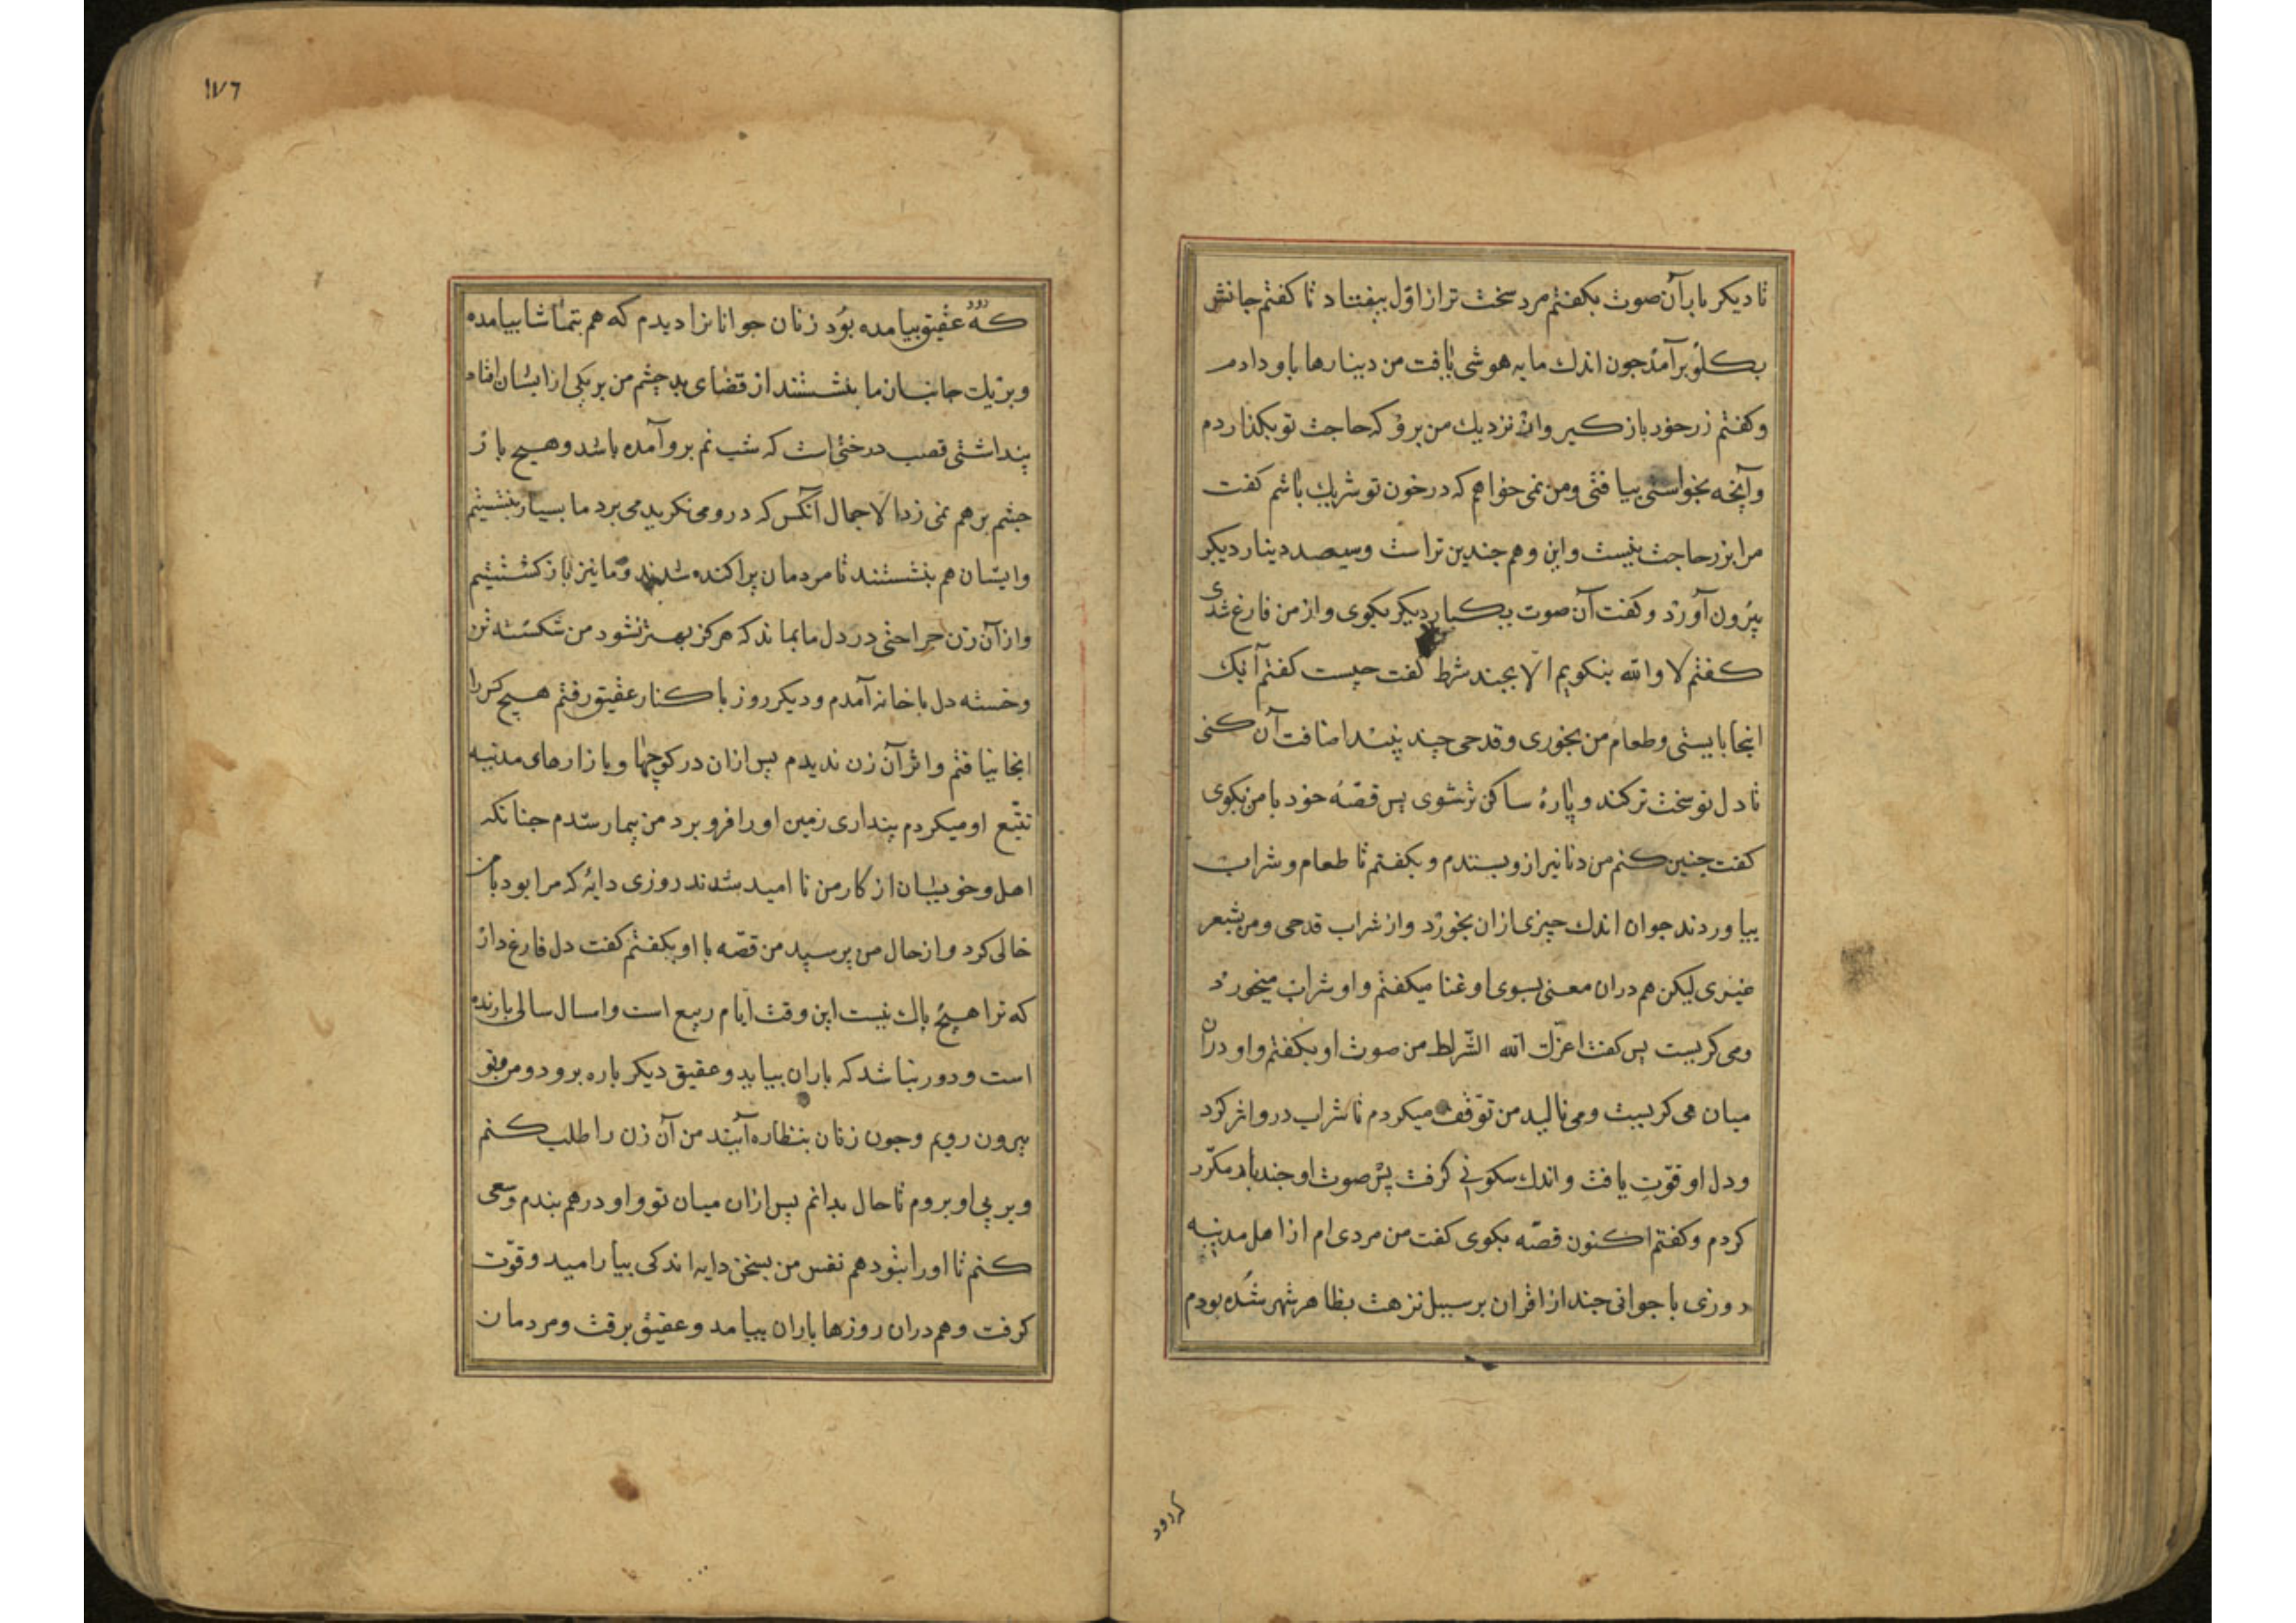 تا دیکر بار آن صوت بکفتم مرد سخت تر از اوّل بیفتاد تا کفتم جانش
بکلو برآمذ جون اندك مایه هوشی یافت من دینارها باو دادم
وکفتم زر خوذ باز کیر واز نزدیك من برو که حاجت تو بکذاردم
وآنچه بخواستی بیافتی ومن نمی خواهم که در خون تو شریك باشم کفت
مرا بزر حاجت نیست واین وهم جندین تراست وسیصد دینار دیکر
بیرون آورد وکفت آن صوت یکبار دیکر بکوی واز من فارغ شدی
کفتم لا والله بنکویم الا بجند شرط کفت چیست کفتم آنک
اینجا بایستی وطعام من بخوری وقدحی چند نبید اضافت آن کنی
تا دل تو سخت تر کند وپارهٔ ساکن تر شوی پس قصّهٔ خود با من بکوی
کفت جنین کنم من دنانیر ازو بستدم وبکفتم تا طعام وشراب
بیاوردند جوان اندك چیزی ازان بخورد واز شراب قدحی ومن بشعر
غیری لیکن هم دران معنی بسوی او غنا میکفتم واو شراب میخورد
ومی کریست پس کفت اعزك الله الشّرط من صوت او بکفتم واو دران
میان می کریست ومی نالید من توّقف میکردم تا شراب درو اثر کرد
ودل او قوّت یافت واندك سکونی کرفت پس صوت او جند بار مکرّر
کردم وکفتم اکنون قصّه بکوی کفت من مردی ام از اهل مدینه
روزی با جوانی جند از اقران بر سبیل نزهت بظاهر شهر شده بودم
کرود
١٧٦
که رود عقیق بیامده بوُد زنان جوانانرا دیدم که هم بتماشا بیامده
وبنزیك جانبان ما بنشستند از قضای بد چشم من بر یکی از ایشان افتاد
پنداشتی قصب درختی است که شب نم برو آمده باشد وهیچ باز
جشم بر هم نمی زد الا جمال آنکس که درو می نکرید می برد ما بسیار بنشستیم
وایشان هم بنشستند تا مردمان پراکنده شدند وما نیز باز کشتیم
واز آن زن جراحتی در دل ما بماند که هرکز بهتر نشود من شکسته تن
وخسته دل با خانه آمدم ودیکر روز با کنار عقیق رفتم هیچ کس را
انجا نیافتم واثر آن زن ندیدم پس ازان در کوچها وبازارهای مدینه
تتبّع او میکردم پنداری زمین اورا فرو برد من بیمار شدم جنانکه
اهل وخویشان از کار من نا امید شدند روزی دایهٔ که مرا بود با من
خالی کرد واز حال من پرسید من قصّه با او بکفتم کفت دل فارغ دار
که ترا هیچ باك نیست این وقت ایام ربیع است وامسال سالی بارنده
است ودور نباشد که باران بیاید وعقیق دیکر باره برود ومن وتو
بیرون رویم وجون زنان بنظاره آیند من آن زن را طلب کنم
وبر پی او بروم تا حال بدانم پس ازان میان تو واو در هم بندم وسعی
کنم تا اورا بتو دهم نفس من بسخن دایه اندکی بیارامید وقوّت
کرفت وهم دران روزها باران بیامد وعقیق برفت ومردمان